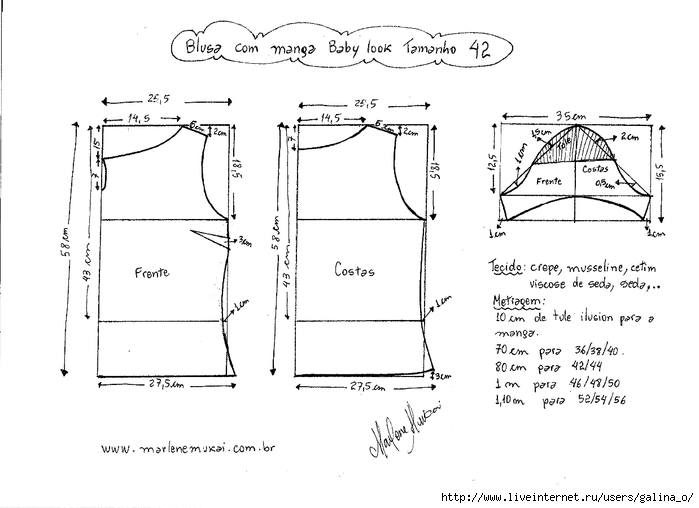 Blusa com manga Baby look Tamanho 42
25,5
14,5
6cm
2cm
15
7
18,5
58 cm
43 cm
3cm
Frente
1cm
27,5 cm
25,5
14,5
6cm
2cm
7
18,5
58 cm
43 cm
Costas
1cm
3cm
27,5 cm
35 cm
12,5
1cm
1,5cm
Tule
2cm
15,5
Frente
Costas
0,5cm
1cm
1cm
Tecido: crepe, musseline, cetim
viscose de seda, seda,..
Metragem:
10 cm de tule ilusion para a
manga.
70 cm para 36/38/40.
80 cm para 42/44
1 m para 46/48/50
1,10 m para 52/54/56
Marlene Mukai
www.marlenemukai.com.br
http://www.liveinternet.ru/users/galina_o/